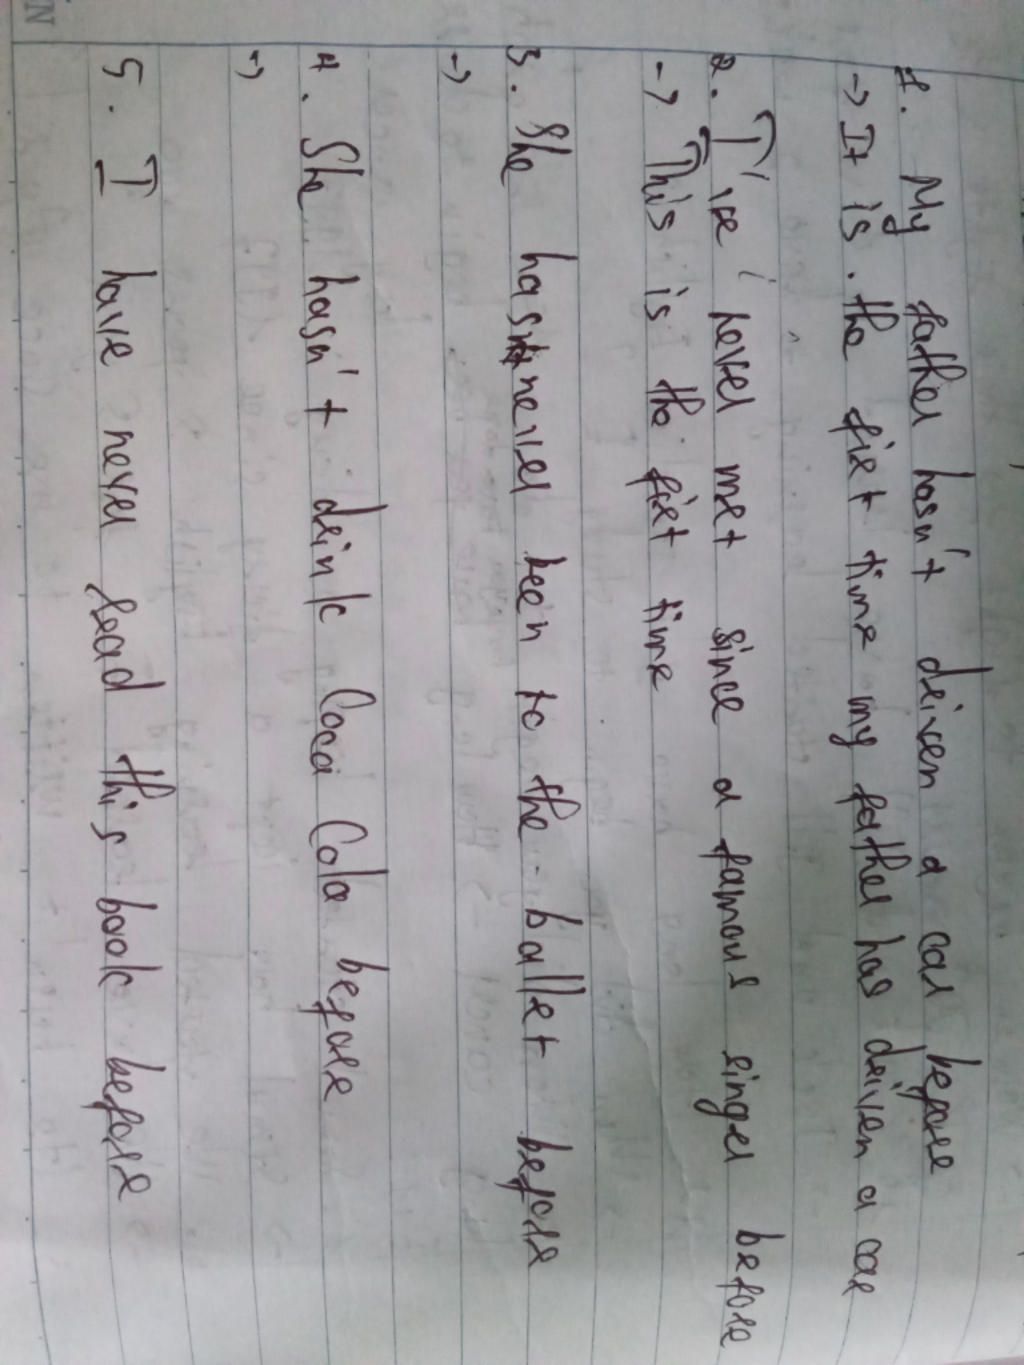 1. My father hasn't driven a car before
-> It is the first time my father has driven a car
2. I've never met since a famous singer before
-> This is the first time
3. She has never been to the ballet before
->
4. She hasn't drink Coca Cola before
->
5. I have never read this book before